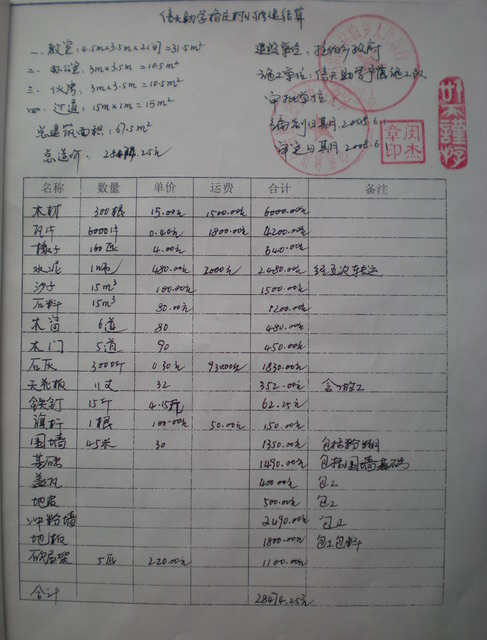 信天助学格庄村小修建结算
一. 教室: 4.5m×3.5m×2间=31.5m²
二. 办公室: 3m×3.5m=10.5m²
三. 伙房: 3m×3.5m=10.5m²
四. 过道: 15m×1m=15m²
总建筑面积: 67.5m²
总造价: 28474.25元
建设单位: 乡政府
施工单位: 信天助学施工队
审批单位
编制日期 2008.6
审定日期 2008.6
闵杰章印
名称 数量 单价 运费 合计 备注
木材 300根 15.00元 1500.00元 6000.00元
瓦片 6000片 0.40元 1800.00元 4200.00元
椽子 160匹 4.00元 640.00元
水泥 1吨 480.00元 2000元 2480.00元
沙子 15m³ 100.00元 1500.00元
石料 15m³ 80.00元 1200.00元
木窗 6道 80 480.00元
木门 5道 90 450.00元
石灰 3000斤 0.30元 930.00元 1830.00元
天花板 11丈 32 352.00元 含工
铁钉 15斤 4.15元 62.25元
旗杆 1根 100.00元 50.00元 150.00元
围墙 45米 30 1350.00元 包括粉糊
基础 1490.00元 包括围墙基础
盖瓦 400.00元 包工
地皮 500.00元 包工
冲粉墙 2490.00元 包工
地板 1800.00元 包工包料
屋架 5匹 220.00元 1100.00元
合计 28474.25元